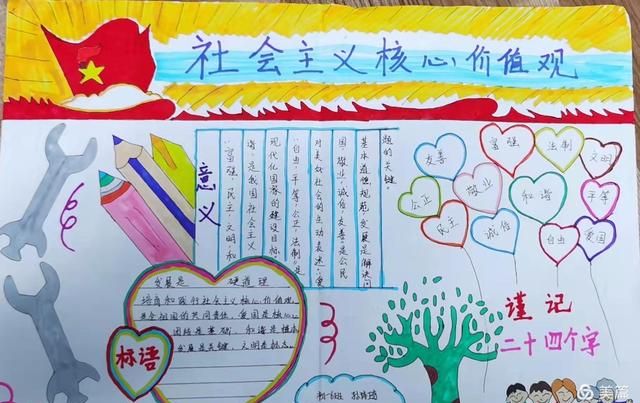 社会主义核心价值观
意义
"富强、民主、文明、和
谐"是我国社会主义
现代化国家的建设目标,
"自由、平等、公正、法制"是
对美好社会的生动表述;"爱
国、敬业、诚信、友善"是公民
基本道德规范,发展是解决问
题的关键
友善
富强
法制
文明
公正
敬业
和谐
平等
民主
诚信
自由
爱国
谨记
二十四个字
标语
发展是 硬道理
培育和践行社会主义核心价值观,
是全社会的共同责任。爱国是核心,
团结是基础,和谐是根本
发展是关键,文明是标志。
初一班
美篇